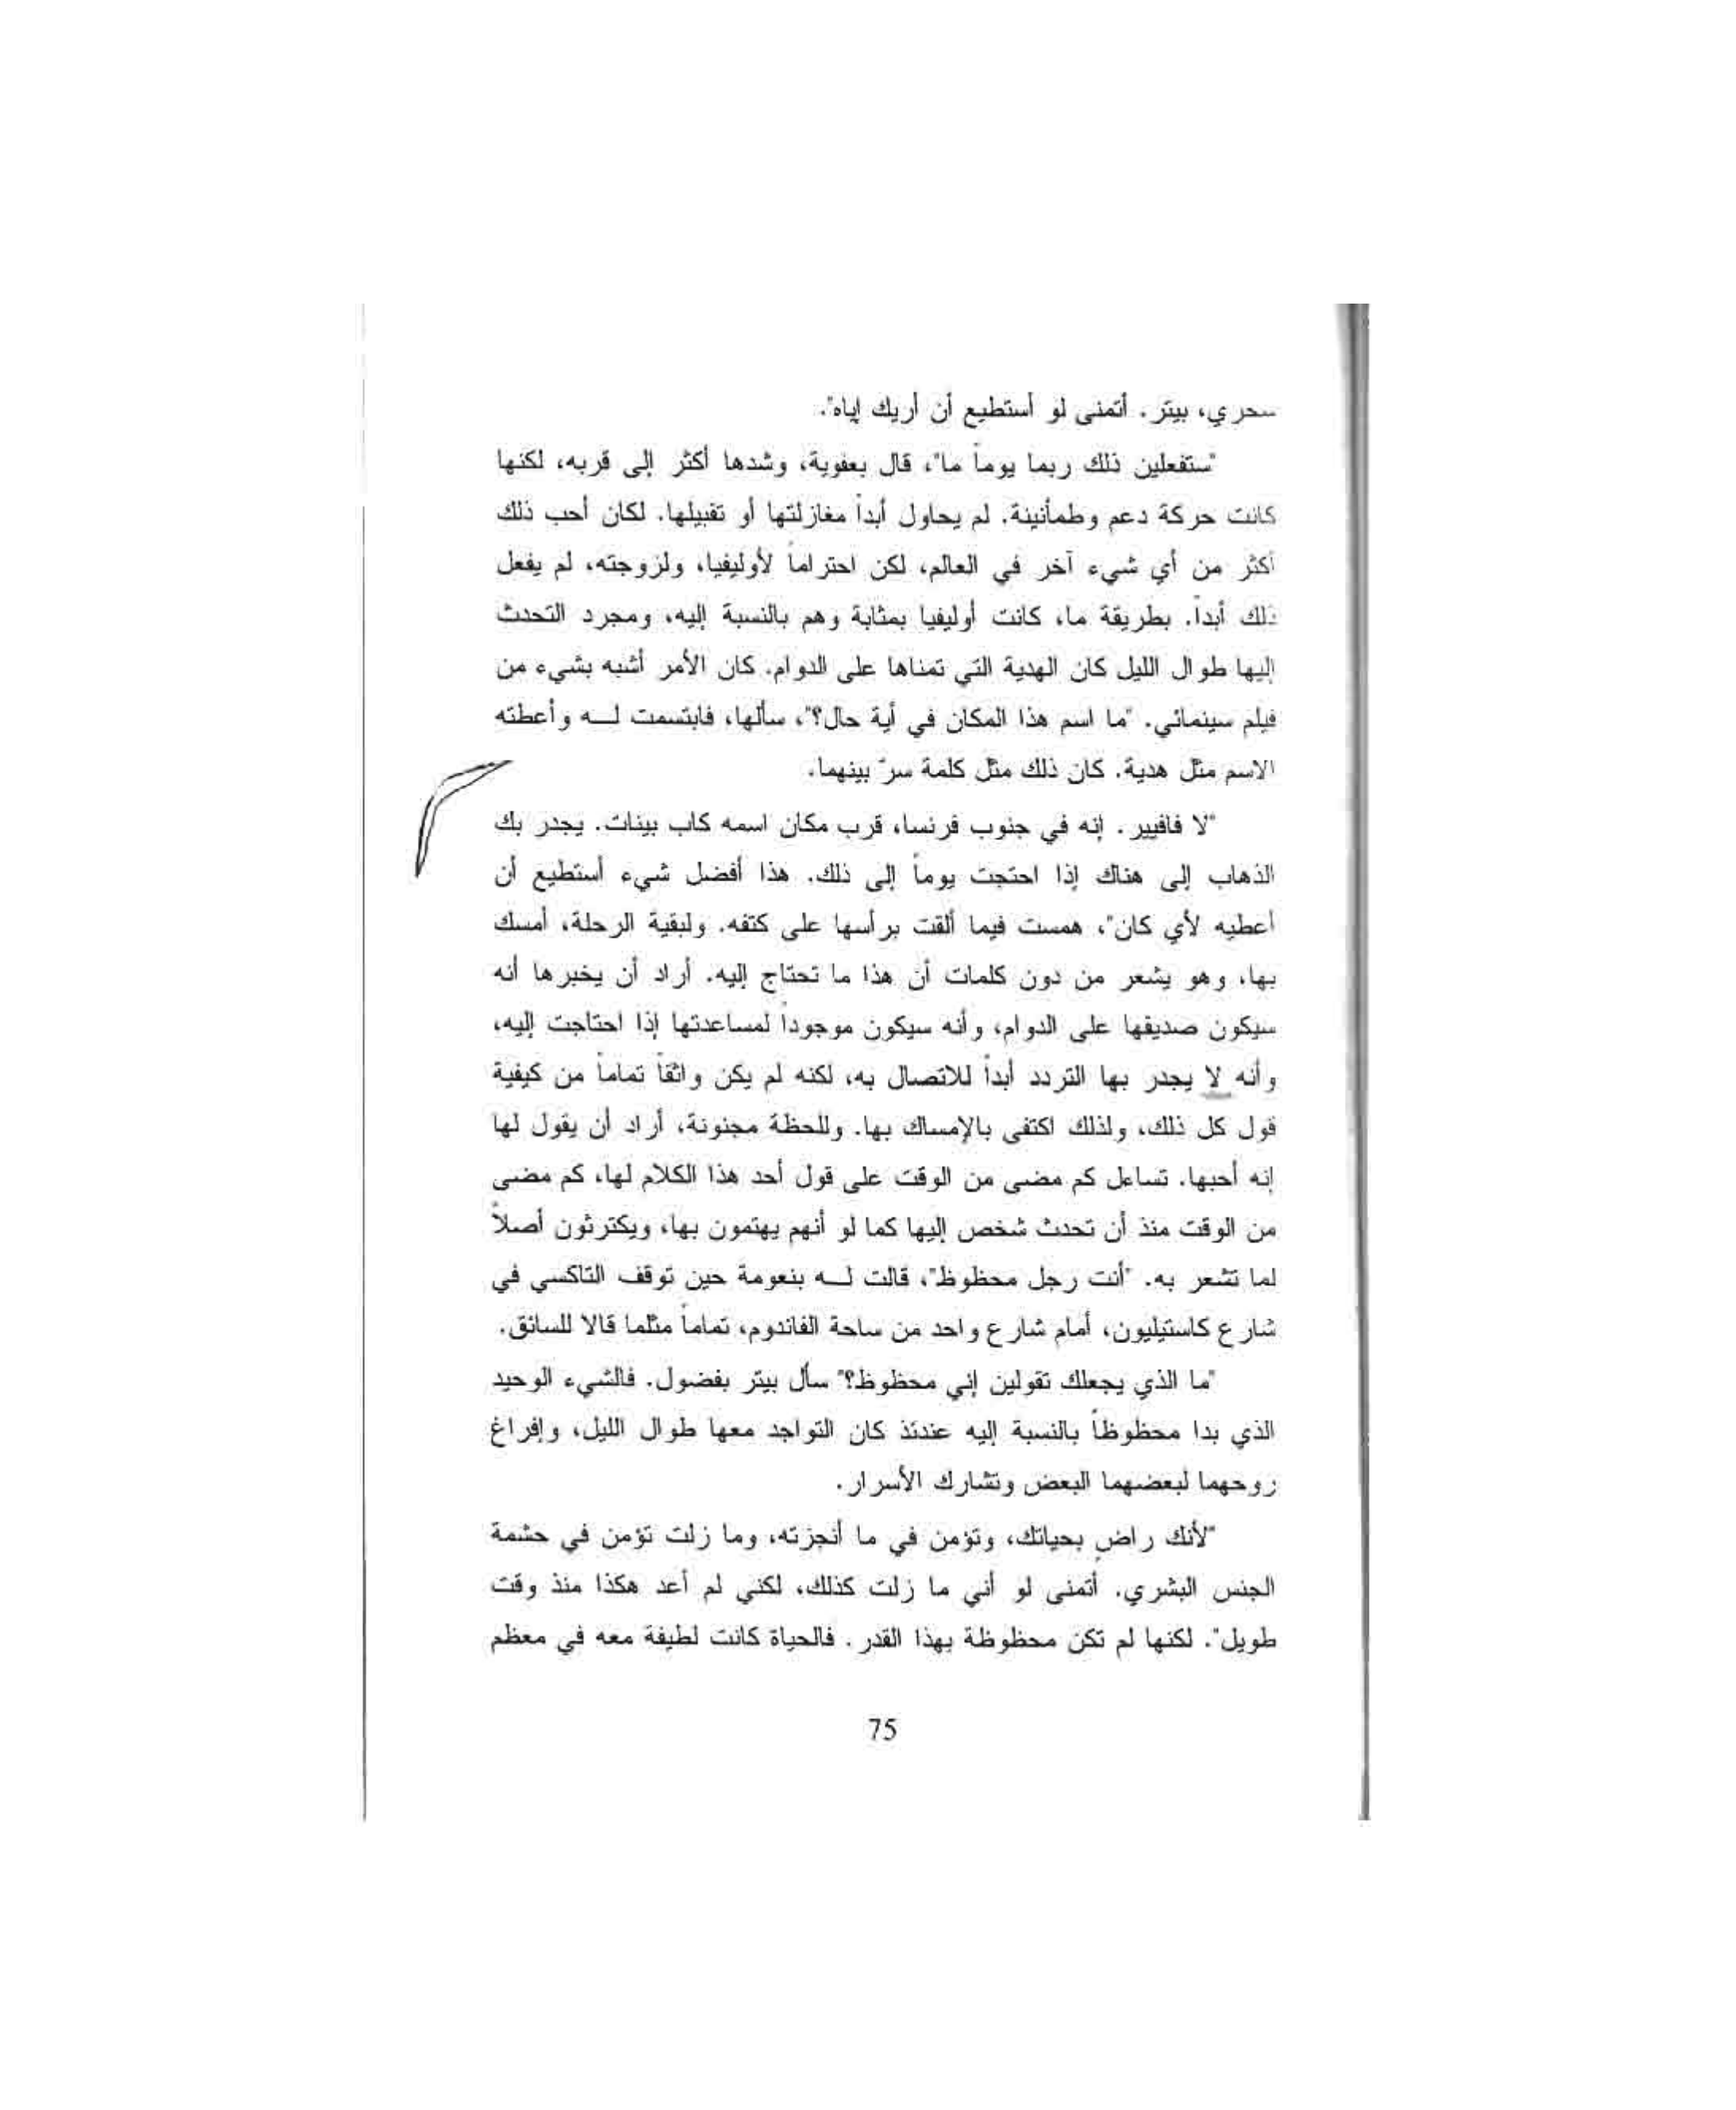 سحري، بيتر. أتمنى لو أستطيع أن أريك إياه".
"ستفعلين ذلك ربما يوماً ما"، قال بعفوية، وشدها أكثر إلى قربه، لكنها
كانت حركة دعم وطمأنينة. لم يحاول أبداً مغازلتها أو تقبيلها. لكان أحب ذلك
أكثر من أي شيء آخر في العالم، لكن احتراماً لأوليفيا، ولزوجته، لم يفعل
ذلك أبداً. بطريقة ما، كانت أوليفيا بمثابة وهم بالنسبة إليه، ومجرد التحدث
إليها طوال الليل كان الهدية التي تمناها على الدوام. كان الأمر أشبه بشيء من
فيلم سينمائي. "ما اسم هذا المكان في أية حال؟"، سألها، فابتسمت لـه وأعطته
الاسم مثل هدية. كان ذلك مثل كلمة سرّ بينهما.
"لا فافيير. إنه في جنوب فرنسا، قرب مكان اسمه كاب بينات. يجدر بك
الذهاب إلى هناك إذا احتجت يوماً إلى ذلك. هذا أفضل شيء أستطيع أن
أعطيه لأي كان"، همست فيما ألقت برأسها على كتفه. ولبقية الرحلة، أمسك
بها، وهو يشعر من دون كلمات أن هذا ما تحتاج إليه. أراد أن يخبرها أنه
سيكون صديقها على الدوام، وأنه سيكون موجوداً لمساعدتها إذا احتاجت إليه،
وأنه لا يجدر بها التردد أبداً للاتصال به، لكنه لم يكن واثقاً تماماً من كيفية
قول كل ذلك، ولذلك اكتفى بالإمساك بها. وللحظة مجنونة، أراد أن يقول لها
إنه أحبها. تساءل كم مضى من الوقت على قول أحد هذا الكلام لها، كم مضى
من الوقت منذ أن تحدث شخص إليها كما لو أنهم يهتمون بها، ويكترثون أصلاً
لما تشعر به. "أنت رجل محظوظ"، قالت لـه بنعومة حين توقف التاكسي في
شارع كاستيليون، أمام شارع واحد من ساحة الفاندوم، تماماً مثلما قالا للسائق.
"ما الذي يجعلك تقولين إني محظوظ؟" سأل بيتر بفضول. فالشيء الوحيد
الذي بدا محظوظاً بالنسبة إليه عندئذ كان التواجد معها طوال الليل، وإفراغ
روحهما لبعضهما البعض وتشارك الأسرار.
"لأنك راضٍ بحياتك، وتؤمن في ما أنجزته، وما زلت تؤمن في حشمة
الجنس البشري. أتمنى لو أني ما زلت كذلك، لكني لم أعد هكذا منذ وقت
طويل". لكنها لم تكن محظوظة بهذا القدر. فالحياة كانت لطيفة معه في معظم
75